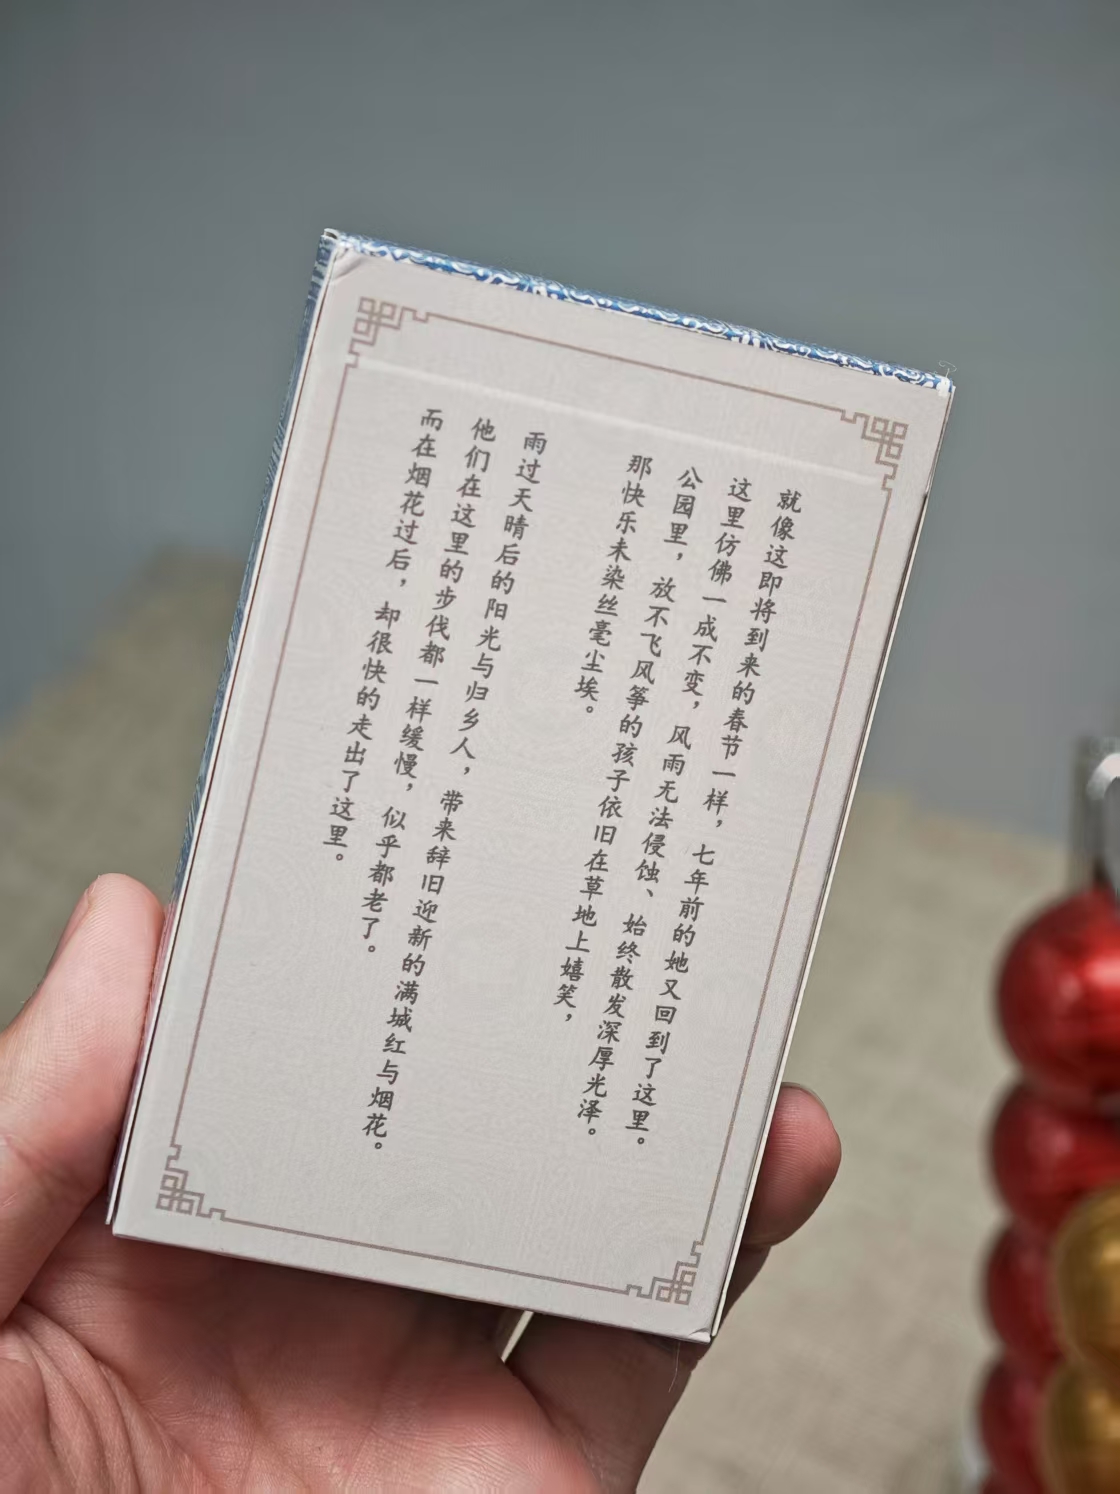 就像这即将到来的春节一样，七年前的她又回到了这里。
这里仿佛一成不变，风雨无法侵蚀、始终散发深厚光泽。
公园里，放不飞风筝的孩子依旧在草地上嬉笑，
那快乐未染丝毫尘埃。
雨过天晴后的阳光与归乡人，带来辞旧迎新的满城红与烟花。
他们在这里的步伐都一样缓慢，似乎都老了。
而在烟花过后，却很快的走出了这里。